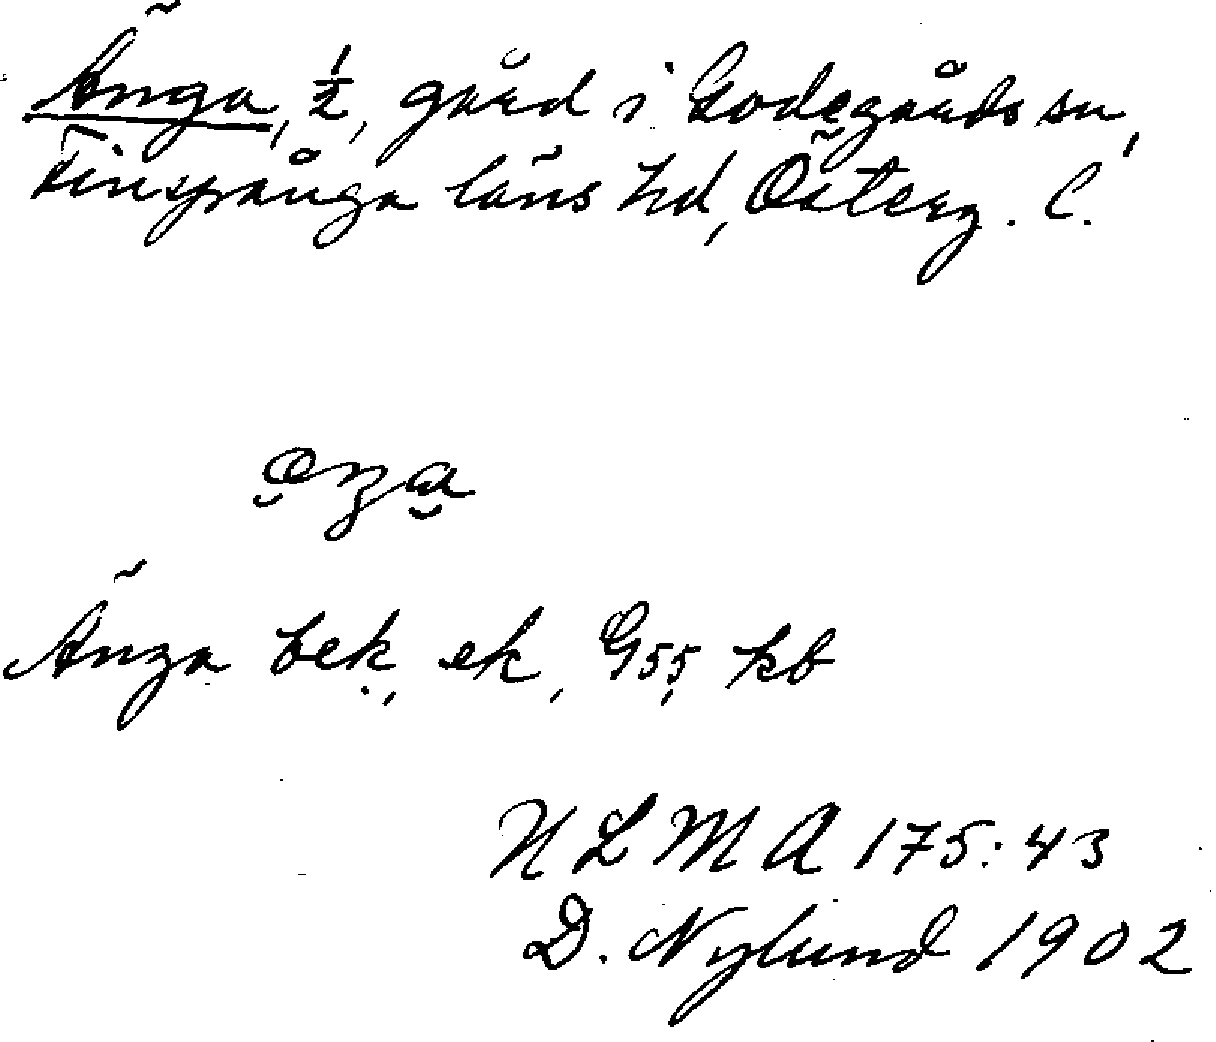 Änga, ½, gård i Godegårds sn,
Finspånga läns hd, Österg. l.
Änga bek., ek, G55, kb
NLMA 175:43
D. Nylund 1902